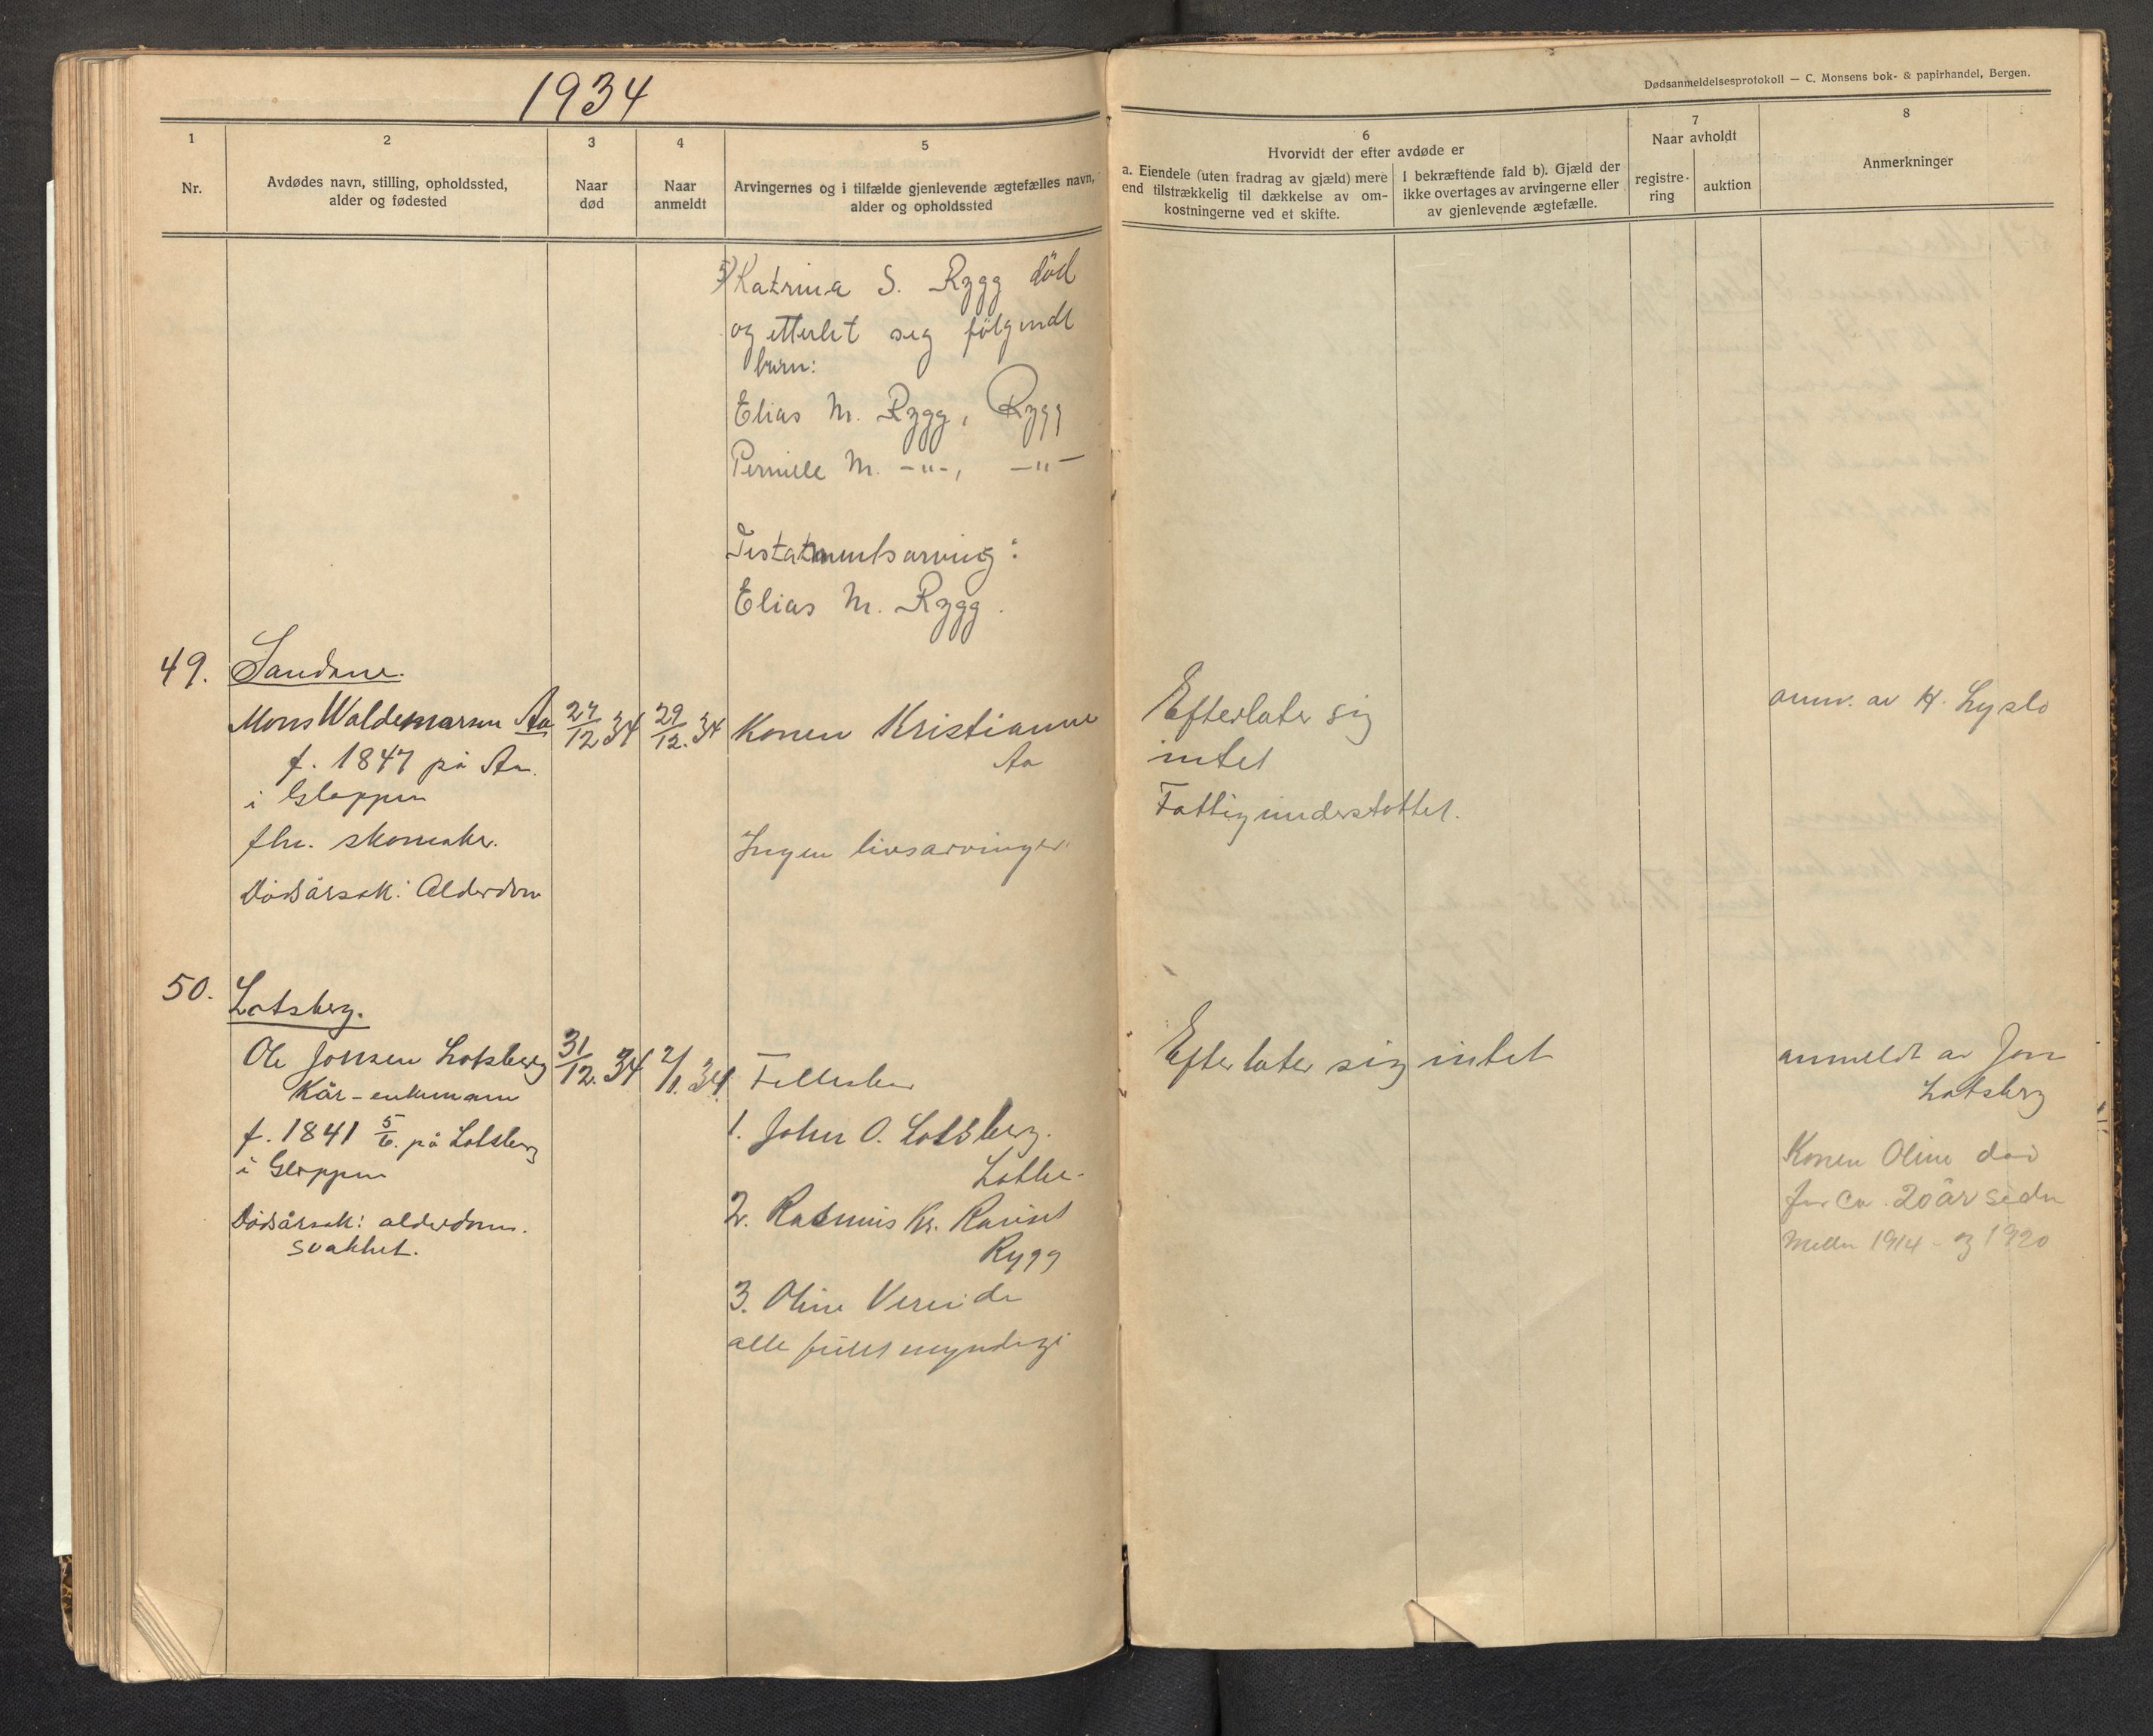 1934
Dødsanmeldelsesprotokoll — C. Monsens bok- & papirhandel, Bergen.
1
2
3
4
5
6
7
8
Nr.
Avdødes navn, stilling, opholdssted,
alder og fødested
Naar
død
Naar
anmeldt
Arvingernes og i tilfælde gjenlevende ægtefælles navn,
alder og opholdssted
Hvorvidt der efter avdøde er
a. Eiendele (uten fradrag av gjæld) mere
end tilstrækkelig til dækkelse av om-
kostningerne ved et skifte.
I bekræftende fald b). Gjæld der
ikke overtages av arvingerne eller
av gjenlevende ægtefælle.
Naar avholdt
registre-
ring
auktion
Anmerkninger
5) Katrina S. Rygg död
og etterlet seg fölgende
born:
Elias M. Rygg, Rygg
Pernille M. -"-, -"-
Testatmentsarving:
Elias M. Rygg.
49. Sandane.
Mons Waldemarsen Aa
f. 1847 på Aa
i Gloppen
fhv. skomaker.
Dödsårsak: Alderdom
27/12 34
29/12. 34
Konen Kristianne
Aa
Ingen livsarvinger.
Efterlater sig
intet
Fattigunderstøttet.
anm. av H. Lyslo
50. Lotsberg.
Ole Jonsen Lotsberg
Kår-enkemann
f. 1841 5/6. på Lotsberg
i Gloppen
Dödsårsak: alderdoms.
svakhet.
31/12. 34
2/1. 34.
Fellesbarn
1. John O. Lotsberg.
Lothe.
2. Rasmus Kr.
Rygg
3. Oline Vereide
alle fullt myndige
Efterlater sig intet
anmeldt av Jon
Lotsberg
Konen Oline död
for ca. 20 år siden
Mellem 1914 - og 1920